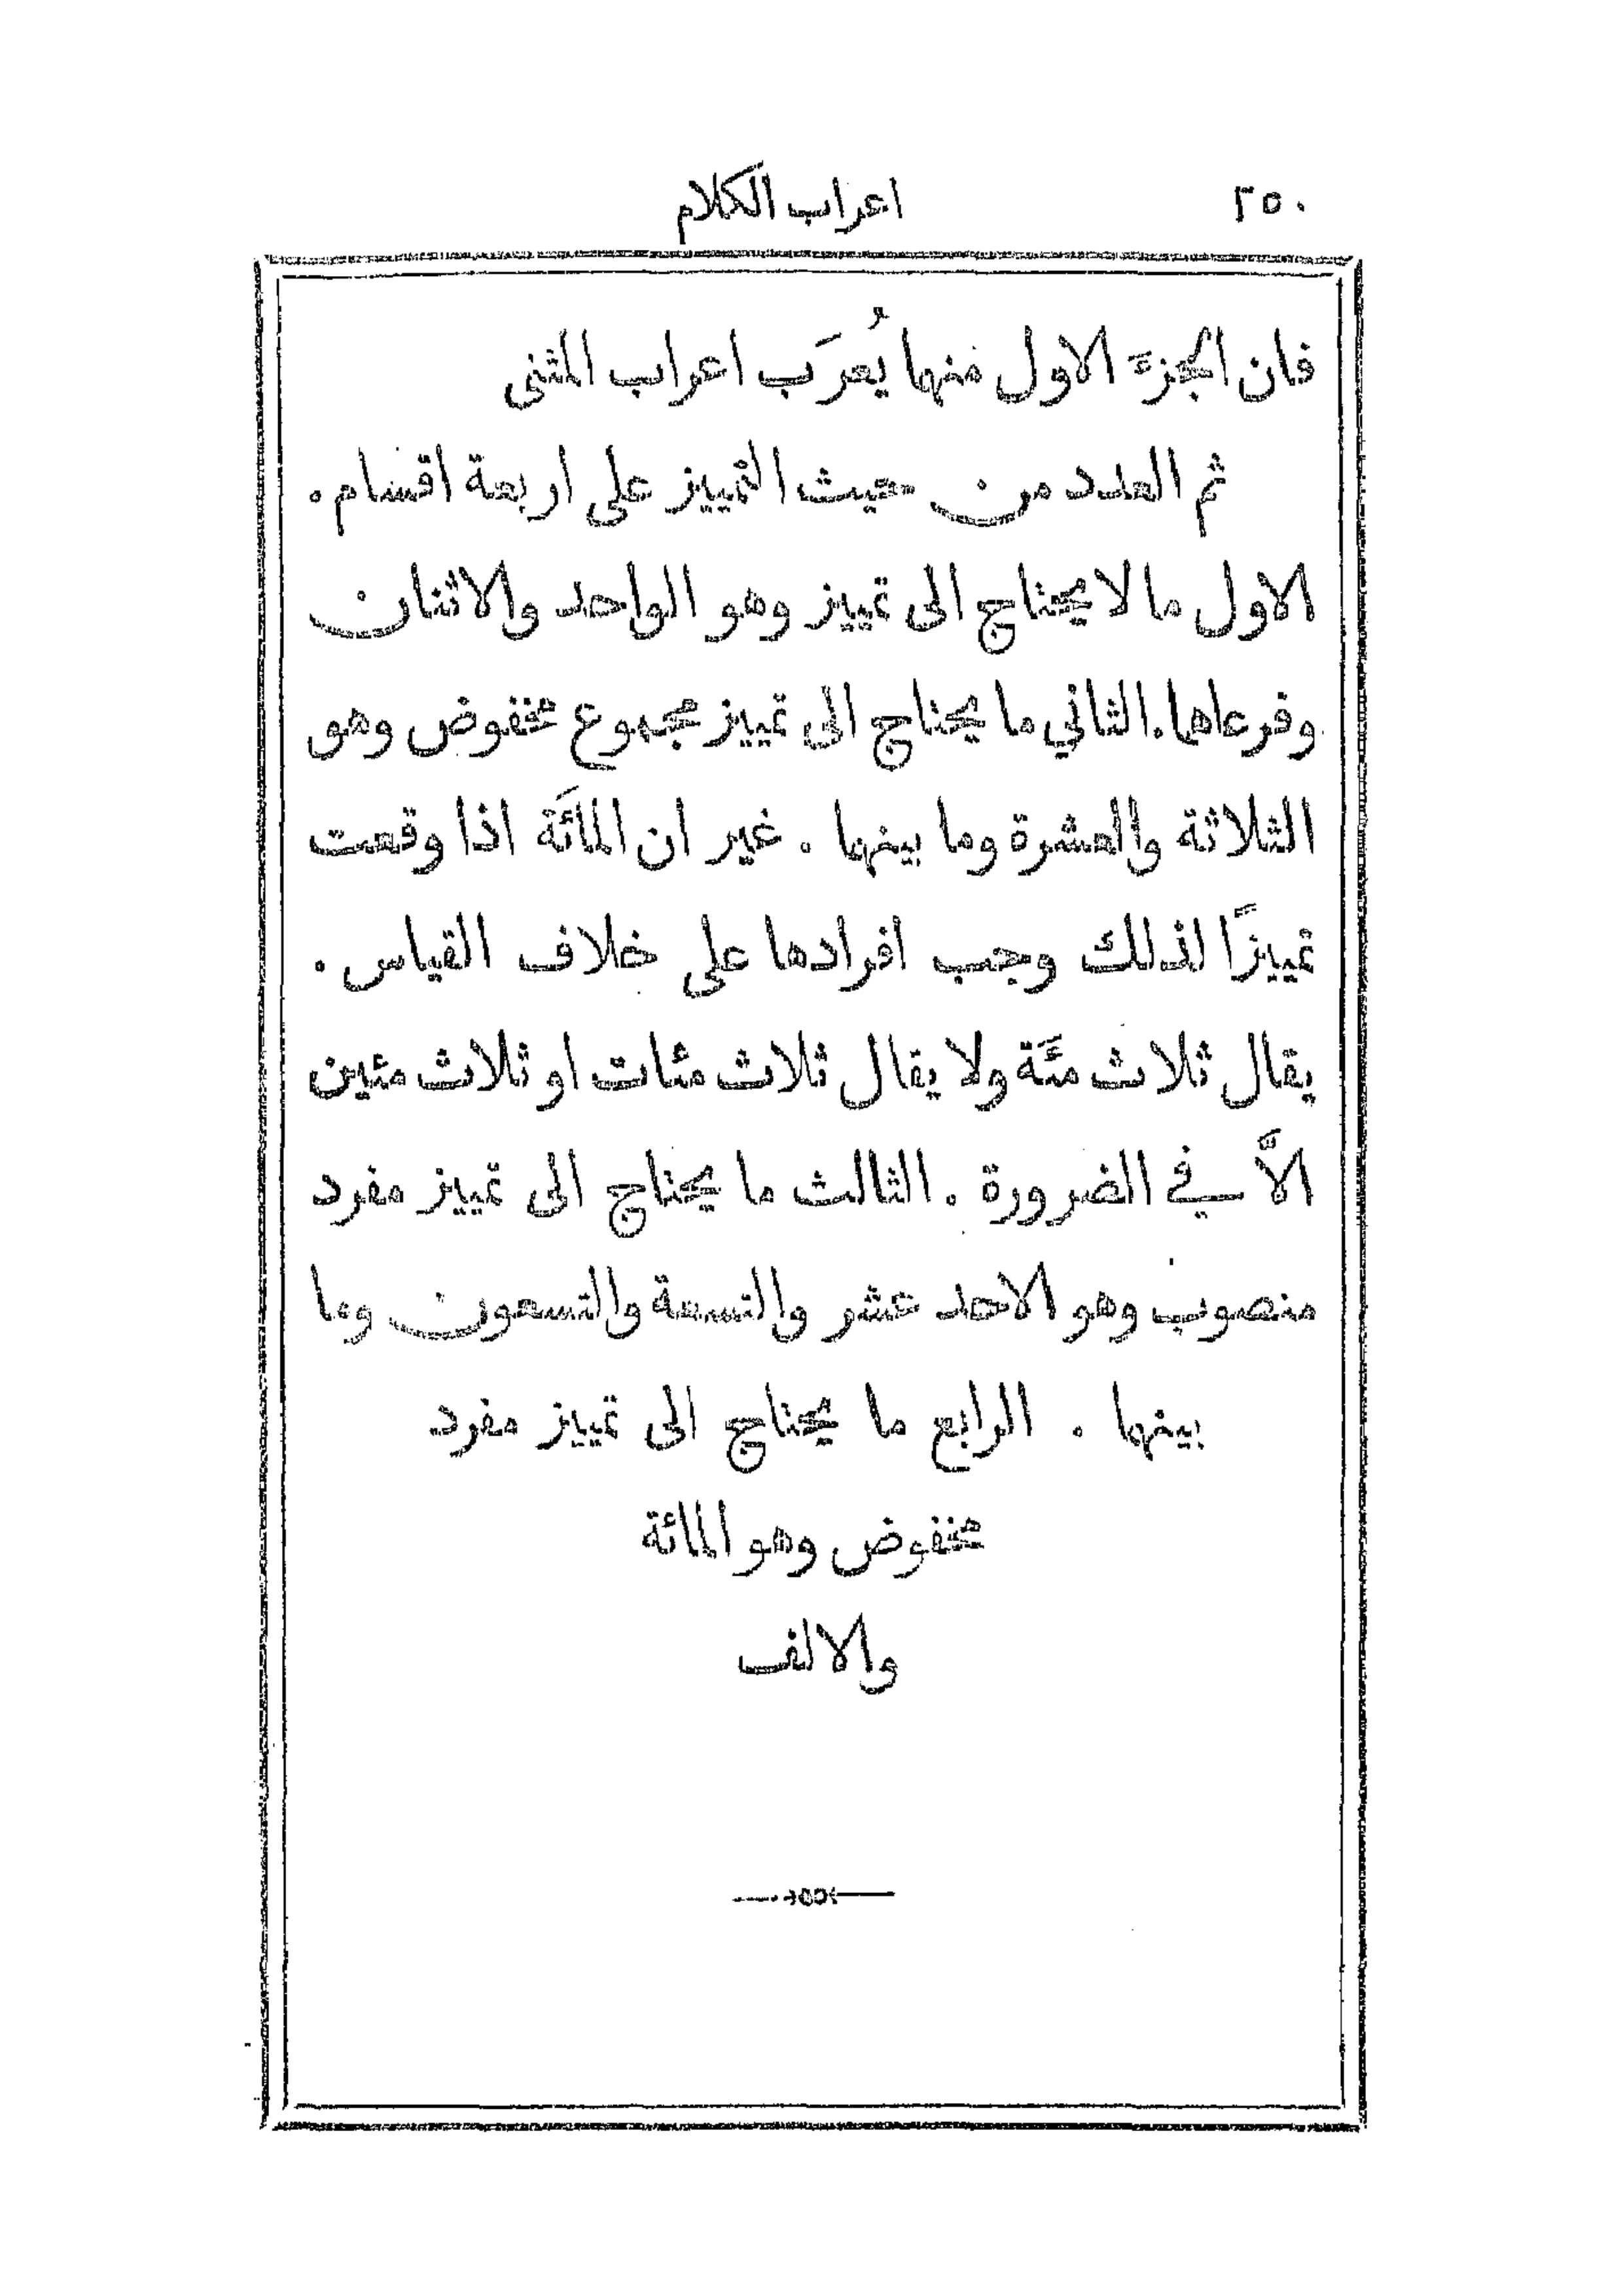 ٢٥٠ اعراب الكلام
فان الجزءَ الاول منهما يُعرَب اعراب المثنى
ثم العدد من حيث التمييز على اربعة اقسام .
الاول ما لا يحتاج الى تمييز وهو الواحد والاثنان
وفرعاهما . الثاني ما يحتاج الى تمييز مجموع مخفوض وهو
الثلاثة والعشرة وما بينهما . غير ان المائَة اذا وقعت
تمييزًا لذلك وجب افرادها على خلاف القياس .
يقال ثلاث مئَة ولا يقال ثلاث مئات او ثلاث مئين
الاَّ في الضرورة . الثالث ما يحتاج الى تمييز مفرد
منصوب وهو الاحد عشر والتسعة والتسعون وما
بينهما . الرابع ما يحتاج الى تمييز مفرد
مخفوض وهو المائة
والالف